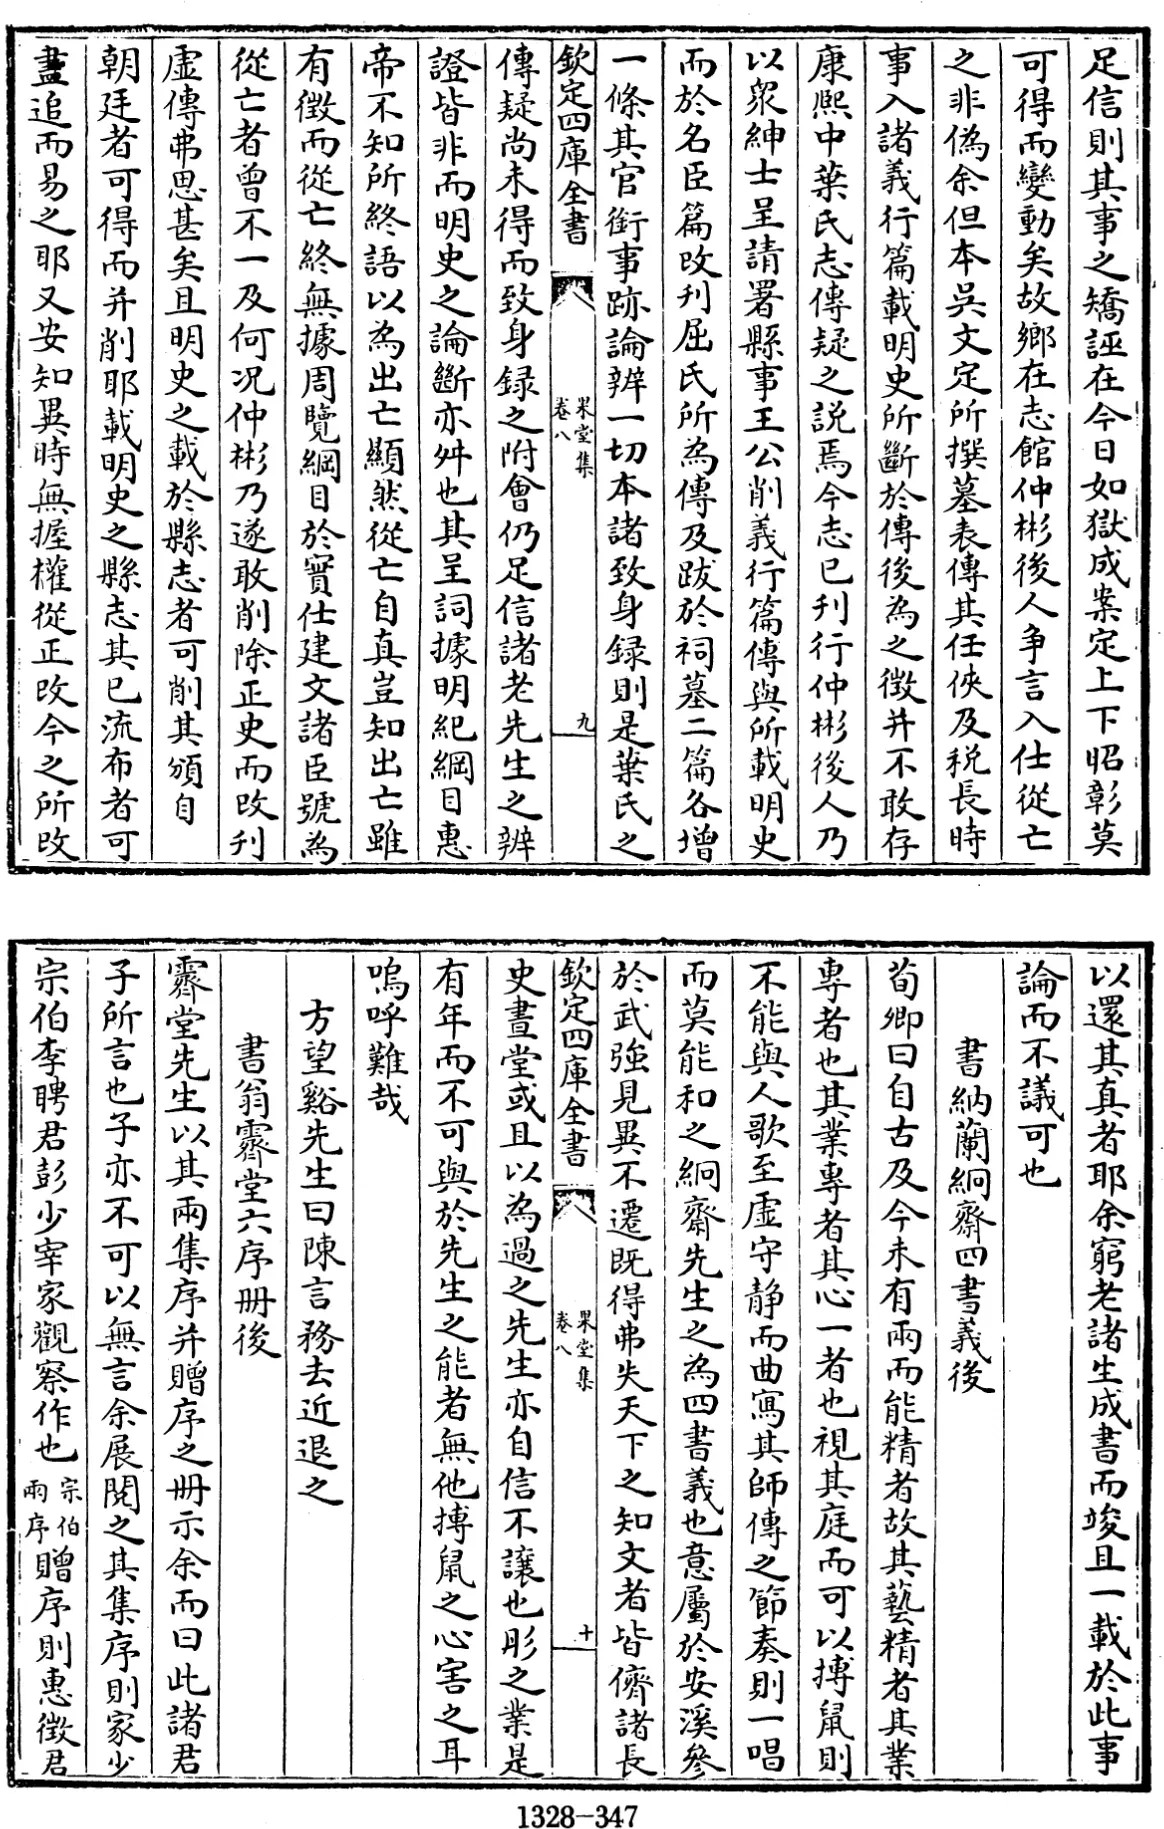 足信則其事之矯誣在今日如獄成案定上下昭彰莫
可得而變動矣故鄉在志館仲彬後人争言入仕從亡
之非偽余但本吳文定所撰墓表傳其任俠及税長時
事入諸義行篇載明史所斷於傳後為之徴并不敢存
康熙中葉氏志傳疑之説焉今志已刋行仲彬後人乃
以衆紳士呈請署縣事王公削義行篇傳與所載明史
而於名臣篇改刋屈氏所為傳及跋於祠墓二篇各增
一條其官銜事跡論辨一切本諸致身録則是葉氏之
欽定四庫全書
果堂集
卷八
九
傳疑尚未得而致身録之附會仍足信諸老先生之辨
證皆非而明史之論斷亦舛也其呈詞據明紀綱目惠
帝不知所終語以為出亡顯然從亡自真豈知出亡雖
有徴而從亡終無據周覽綱目於實仕建文諸臣號為
從亡者曾不一及何况仲彬乃遂敢削除正史而改刋
虚傳弗思甚矣且明史之載於縣志者可削其頒自
朝廷者可得而并削耶載明史之縣志其已流布者可
盡追而易之耶又安知異時無握權從正改今之所改
以還其真者耶余窮老諸生成書而竣且一載於此事
論而不議可也
書納蘭絅齋四書義後
荀卿曰自古及今未有兩而能精者故其藝精者其業
專者也其業專者其心一者也視其庭而可以搏鼠則
不能與人歌至虚守静而曲寫其師傳之節奏則一唱
而莫能和之絅齋先生之為四書義也意屬於安溪參
於武強見異不遷既得弗失天下之知文者皆儕諸長
欽定四庫全書
果堂集
卷八
十
史晝堂或且以為過之先生亦自信不讓也彤之業是
有年而不可與於先生之能者無他搏鼠之心害之耳
嗚呼難哉
方望谿先生曰陳言務去近退之
書翁霽堂六序冊後
霽堂先生以其兩集序并贈序之冊示余而曰此諸君
子所言也子亦不可以無言余展閱之其集序則家少
宗伯李聘君彭少宰家觀察作也宗伯兩序贈序則惠徴君
1328-347